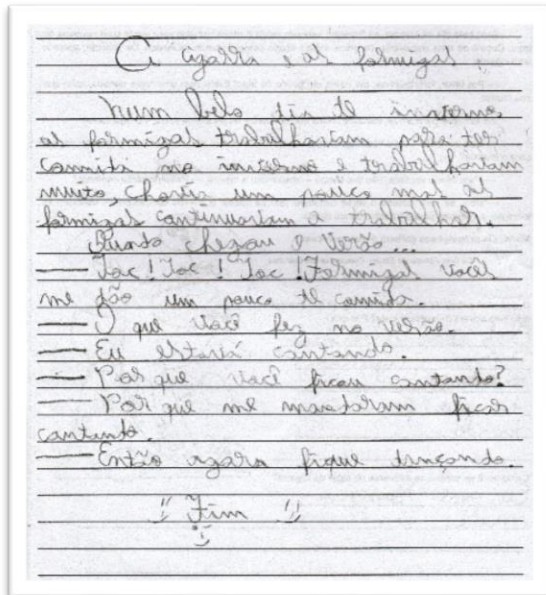 A cigarra e as formigas.
Num belo dia de inverno
as formigas trabalhavam para ter
comida no inverno e trabalhavam
muito, chovia um pouco mas as
formigas continuavam a trabalhar.
Quando chegou o verão...
— Toc! Toc! Toc! Formigas vocês
me dão um pouco de comida.
— O que você fez no verão.
— Eu estava cantando.
— Por que você ficou cantando?
— Por que me mandaram ficar
cantando.
— Então agora fique dançando.
Fim